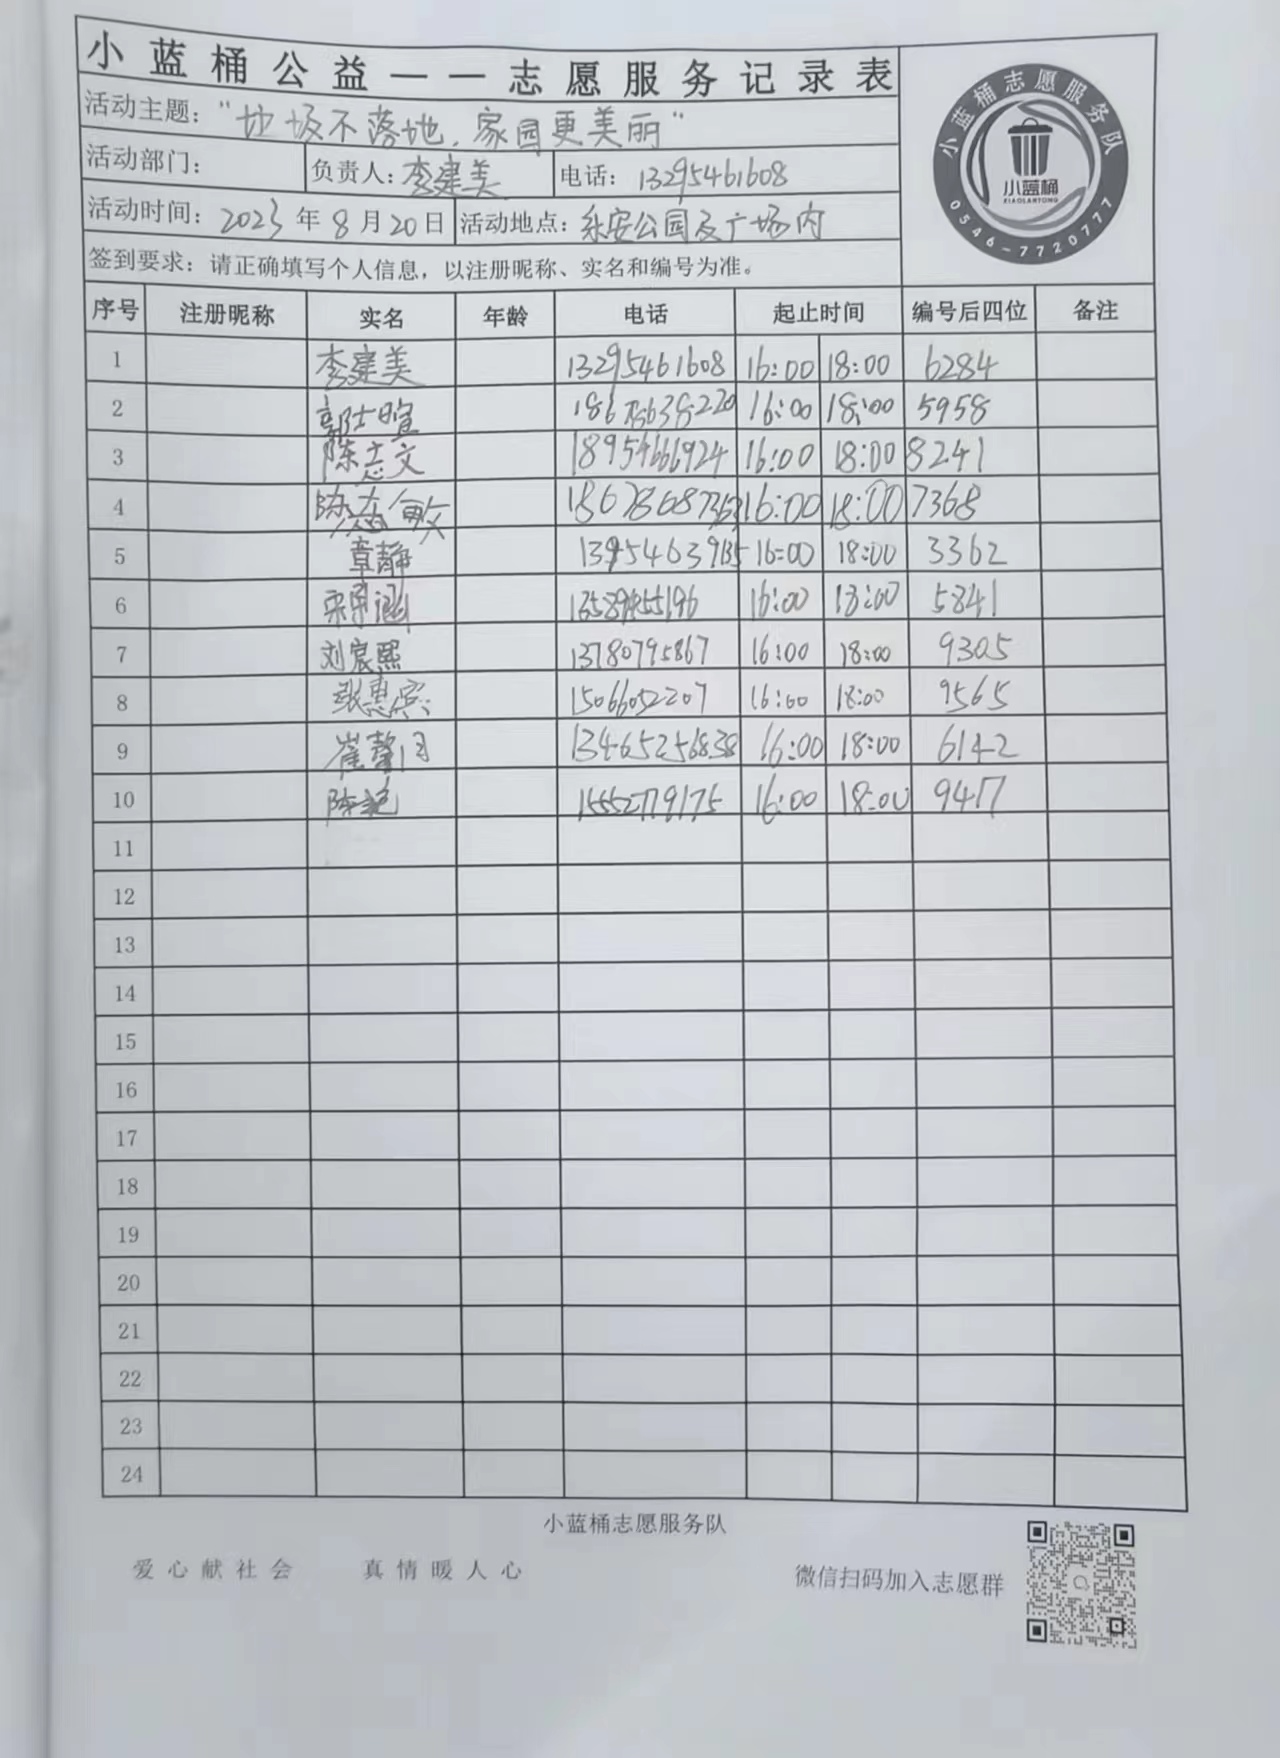 小蓝桶公益——志愿服务记录表
活动主题："垃圾不落地，家园更美丽"
活动部门： 负责人：李建美 电话：13295461608
活动时间：2023年8月20日 活动地点：永安公园及广场内
签到要求：请正确填写个人信息，以注册昵称、实名和编号为准。
小蓝桶志愿服务队
小蓝桶
XIAOLANTONG
0546-7720777
序号 注册昵称 实名 年龄 电话 起止时间 编号后四位 备注
1 李建美 13295461608 16:00 18:00 6284
2 16:00 18:00 5958
3 陈志文 18954666924 16:00 18:00 8241
4 陈志敏 18678687368 16:00 18:00 7368
5 章静 13954639135 16:00 18:00 3362
6 16:00 18:00 5841
7 刘宸熙 13780795867 16:00 18:00 9305
8 张惠宾 15066052207 16:00 18:00 9565
9 崔馨月 13465256838 16:00 18:00 6142
10 15552779175 16:00 18:00 9417
11
12
13
14
15
16
17
18
19
20
21
22
23
24
小蓝桶志愿服务队
爱心献社会 真情暖人心 微信扫码加入志愿群